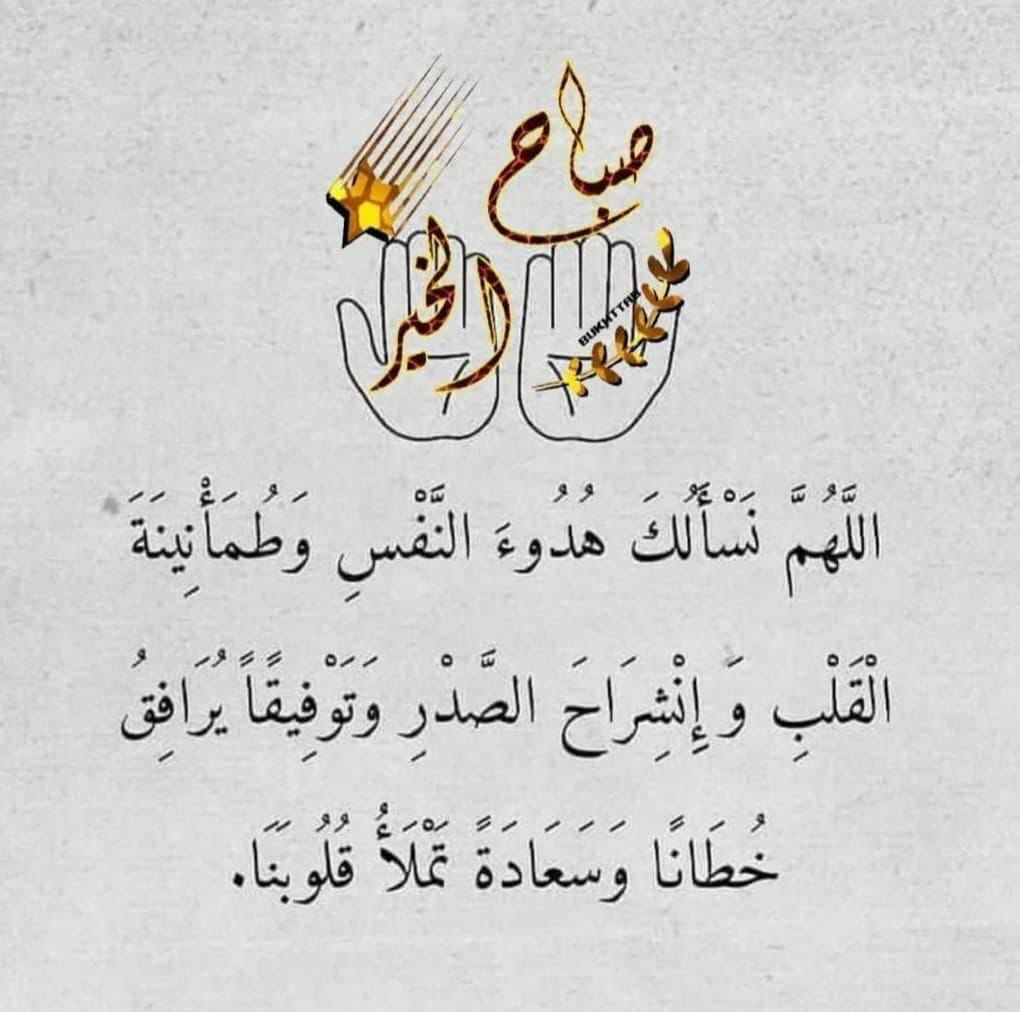 صباح
الخير
BUKHTTAR
اللَّهُمَّ نَسْأَلُكَ هُدُوءَ النَّفْسِ وَطُمَأْنِينَةَ
الْقَلْبِ وَ إِنْشِرَاحَ الصَّدْرِ وَتَوْفِيقًا يُرَافِقُ
خُطَانًا وَسَعَادَةً تَمْلَأُ قُلُوبَنَا.